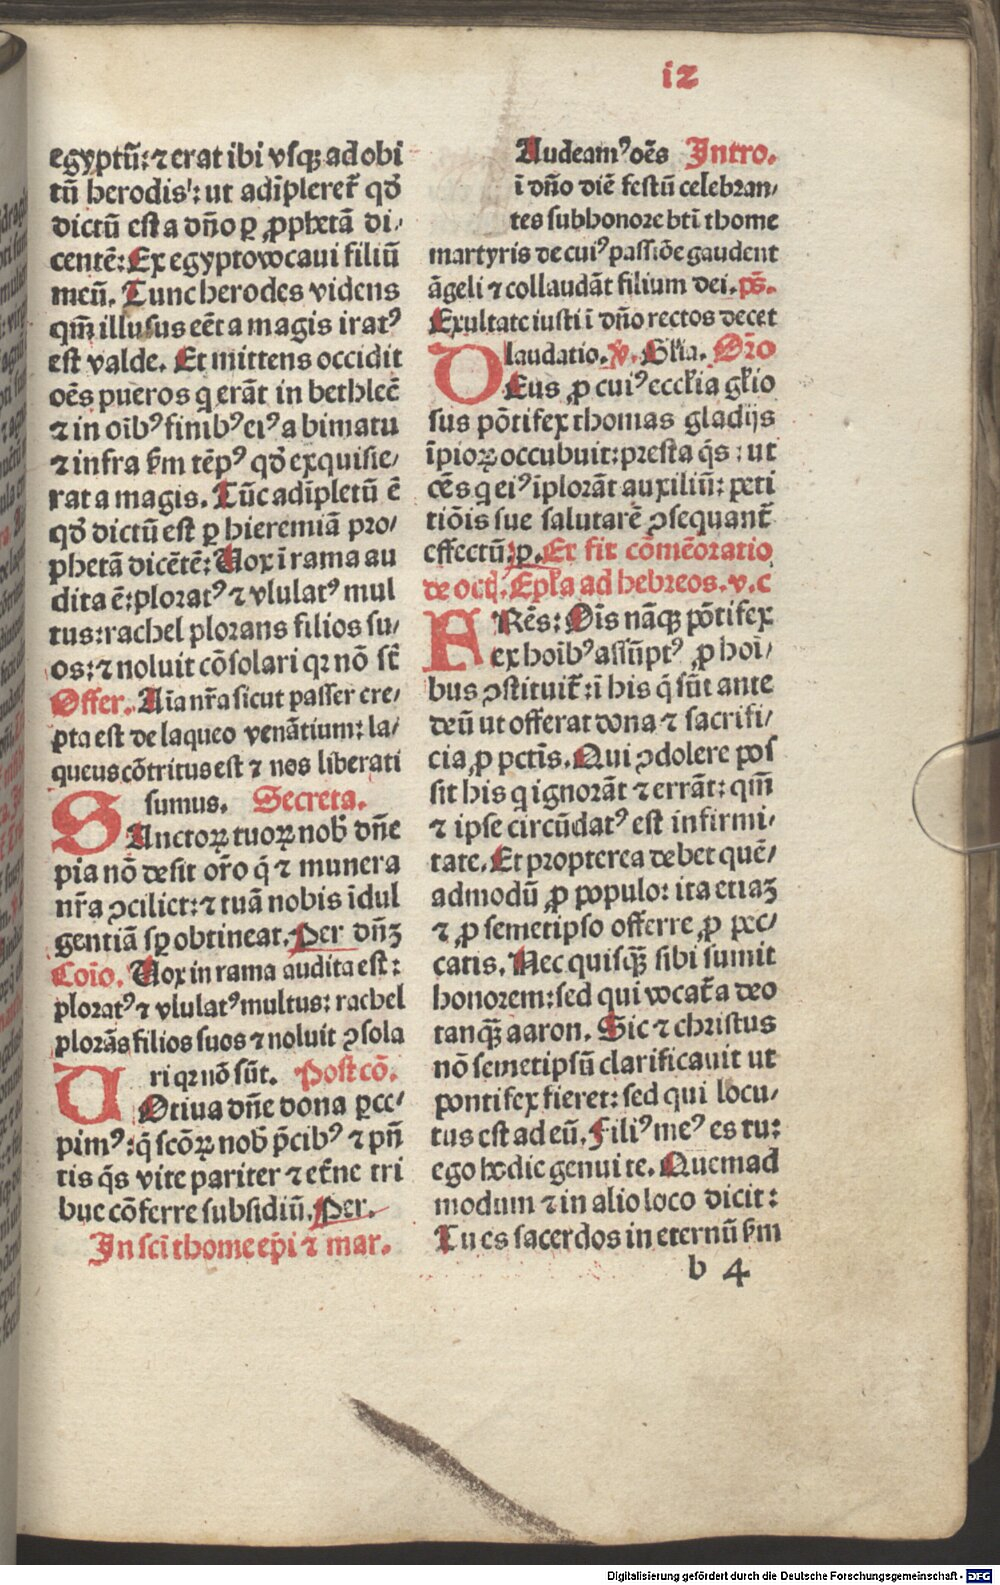 i2
egyptū: ⁊ erat ibi vsqꝫ ad obi
tū herodis: ut adīpleretͬ qd̄
dictū est a dño ꝑ ꝓphetā di⸗
centē: Ex egypto vocaui filiū
meū. Tunc herodes videns
qm̄ illusus eēt a magis iratꝰ
est valde. Et mittens occidit
oēs pueros q erāt in bethleē
⁊ in oībꝰ finibꝰ eiꝰ a bimatu
⁊ infra ẜm tēpꝰ qd̄ exquisie⸗
rat a magis. Tūc adīpletū ē
qd̄ dictū est ꝑ hieremiā pro⸗
phetā dicētē: Vox ī rama au
dita ē: ploratꝰ ⁊ vlulatꝰ mul
tus: rachel plorans filios su⸗
os: ⁊ noluit cōsolari qꝛ nō st̄
Offer. Aīa nr̄a sicut passer ere⸗
pta est de laqueo venātium: la⸗
queus cōtritus est ⁊ nos liberati
sumus. Secreta.
SAnctoꝝ tuoꝝ nob̄ dn̄e
pia nō desit or̄o q̄ ⁊ munera
nr̄a ꝯciliet: ⁊ tuā nobis īdul
gentiā sꝑ obtineat. Per dn̄ꝫ
Coīo. Vox in rama audita est:
ploratꝰ ⁊ vlulatꝰ multus: rachel
plorās filios suos ⁊ noluit ꝯsola
ri qꝛ nō sūt. Postcō.
VOtiua dn̄e dona ꝑce⸗
pimꝰ: q̄ scōꝝ nob̄ p̄cibꝰ ⁊ pn̄
tis q̄s vite pariter ⁊ et̄ne tri
bue cōferre subsidiū. Per.
In sci̅ thome ep̄i ⁊ mar.
Audeamꝰ oēs Intro.
ī dño diē festū celebran⸗
tes sub honore bt̄i thome
martyris de cuiꝰ passiōe gaudent
āgeli ⁊ collaudāt filium dei. ps̄.
Exultate iusti ī dño rectos decet
laudatio. v. Gl̄ia. Or̄o
DEus ꝓ cuiꝰ eccl̄ia gl̄io
sus pōtifex thomas gladijs
īpioꝝ occubuit: presta q̄s: ut
oēs q eiꝰ īplorāt auxiliū: peti
tiōis sue salutarē ꝯsequant̄
effectū. ꝑ. Et fit cōmēoratio
de oct. Epl̄a ad hebreos. v. c
FRēs: Oīs nāqꝫ pōtifex
ex hoībꝰ assūptꝰ ꝓ hoī⸗
bus ꝯstituit̄: ī his q̄ sūt ante
deū ut offerat dona ⁊ sacrifi⸗
cia ꝓ pctīs. Qui ꝯdolere pos
sit his q ignorāt ⁊ errāt: qm̄
⁊ ipse circūdatꝰ est infirmi⸗
tate. Et propterea debet quē⸗
admodū ꝓ populo: ita etiaꝫ
⁊ ꝓ semetipso offerre ꝓ pec⸗
catis. Nec quisqꝫ̄ sibi sumit
honorem: sed qui vocat̄ a deo
tanqꝫ̄ aaron. Sic ⁊ christus
nō semetipsū clarificauit ut
pontifex fieret: sed qui locu⸗
tus est ad eū. Filiꝰ meꝰ es tu:
ego hodie genui te. Quemad
modum ⁊ in alio loco dicit:
Tu es sacerdos in eternū ẜm
b 4
Digitalisierung gefördert durch die Deutsche Forschungsgemeinschaft - DFG